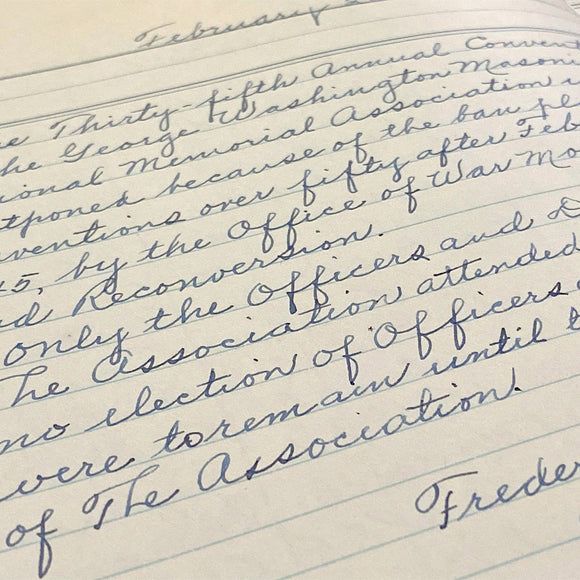 February
e Thirty-fifth Annual Convent
he George Washington Mason
ional Memorial Association
tponed because of the ban pl
ventions over fifty after Feb
45, by the Office of War Mo
d Reconversion.
only the Officers and D
The Association attended
no election of Officers
were to remain until t
of The Association.
Freder